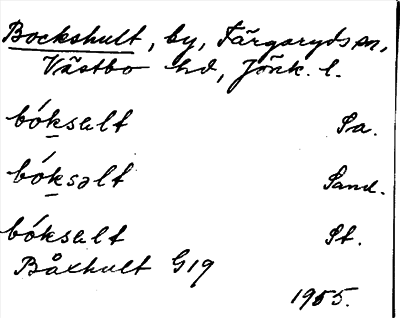 Bockshult, by, Färgaryds sn,
Västbo hd, Jönk. l.
bóksult Sa.
bóksəlt Sand.
bóksult St.
Båxhult G19
1955.